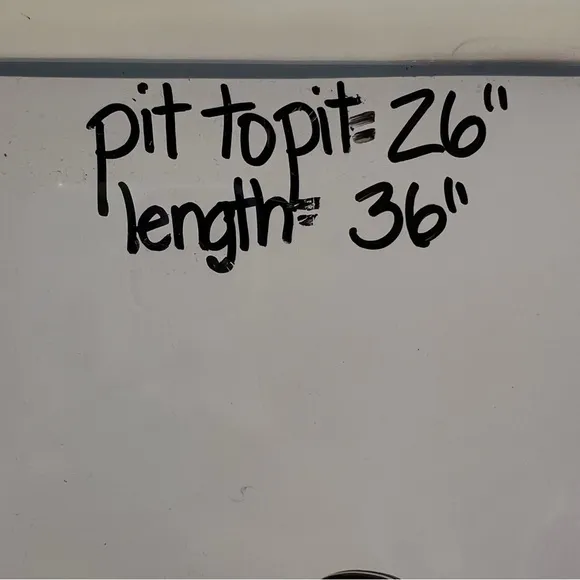 pit to pit= 26"
length= 36"